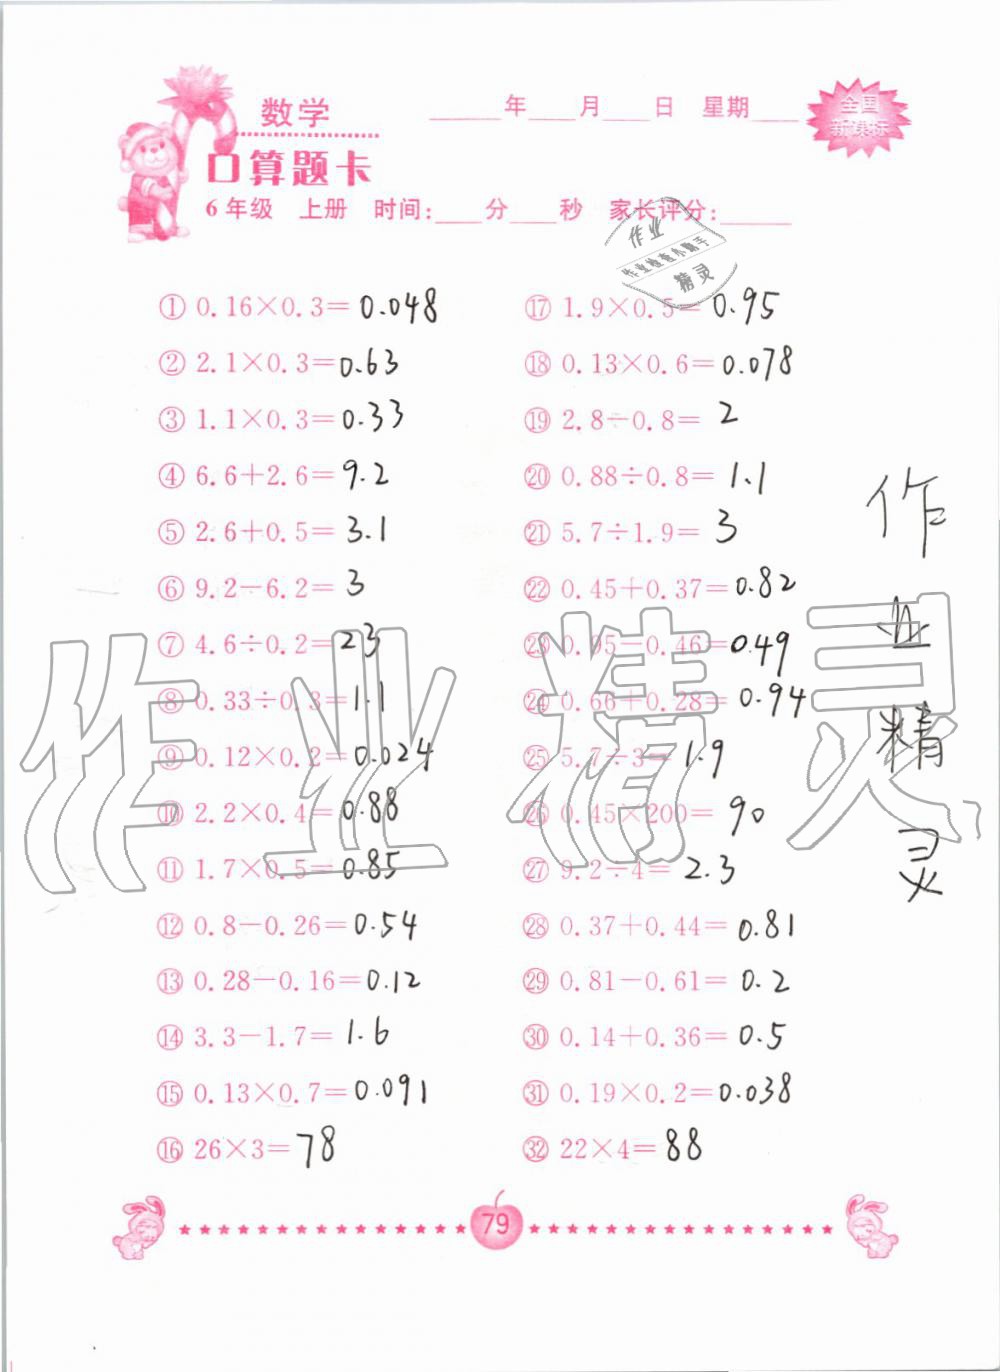 数学
年 月 日 星期
全国
新课标
口算题卡
6年级 上册 时间: 分 秒 家长评分:
作业
作业检查小助手
精灵
① 0.16×0.3=0.048
② 2.1×0.3=0.63
③ 1.1×0.3=0.33
④ 6.6+2.6=9.2
⑤ 2.6+0.5=3.1
⑥ 9.2-6.2=3
⑦ 4.6÷0.2=23
⑧ 0.33÷0.3=1.1
⑨ 0.12×0.2=0.024
⑩ 2.2×0.4=0.88
⑪ 1.7×0.5=0.85
⑫ 0.8-0.26=0.54
⑬ 0.28-0.16=0.12
⑭ 3.3-1.7=1.6
⑮ 0.13×0.7=0.091
⑯ 26×3=78
⑰ 1.9×0.5=0.95
⑱ 0.13×0.6=0.078
⑲ 2.8-0.8=2
⑳ 0.88÷0.8=1.1
㉑ 5.7÷1.9=3
㉒ 0.45+0.37=0.82
㉓ 0.95-0.46=0.49
㉔ 0.66+0.28=0.94
㉕ 5.7÷3=1.9
㉖ 0.45×200=90
㉗ 9.2÷4=2.3
㉘ 0.37+0.44=0.81
㉙ 0.81-0.61=0.2
㉚ 0.14+0.36=0.5
㉛ 0.19×0.2=0.038
㉜ 22×4=88
作业精灵
作业精灵
79